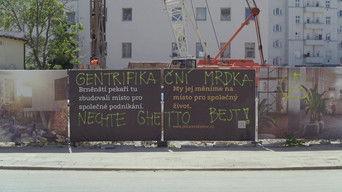 GENTRIFIKAČNÍ MRDKA
Brněnští pekaři tu
zbudovali místo pro
společné podnikání.
My jej měníme na
místo pro společný
život.
NECHTE GHETTO BEJT!